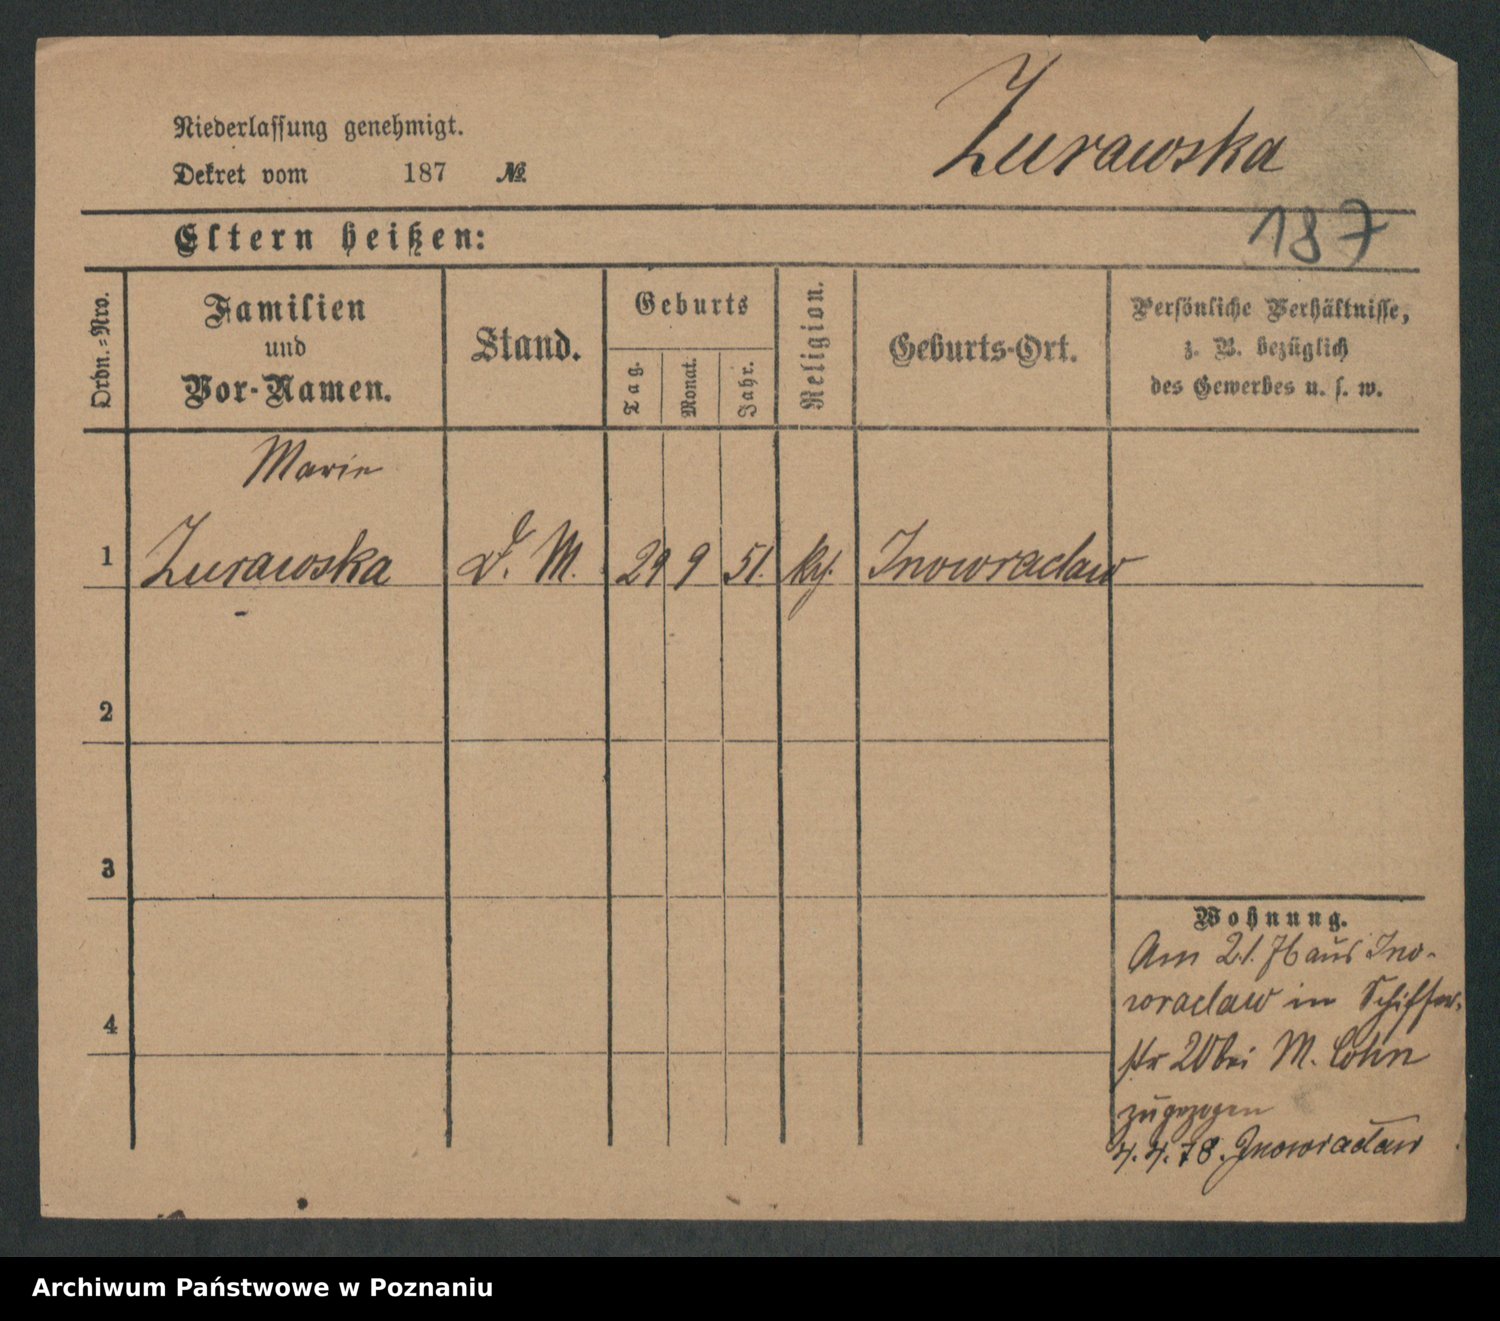 Zurawska
Niederlassung genehmigt.
Dekret vom 187 №
187
Eltern heißen:
Ordn.-Nro.
Familien
und
Vor-Namen.
Stand.
Geburts
Tag.
Monat.
Jahr.
Religion.
Geburts-Ort.
Persönliche Verhältnisse,
z. B. bezüglich
des Gewerbes u. s. w.
Marie
1 Zurawska D. M. 29 9 51. Inowraclaw
2
3
4
Wohnung.
Am 2.1.76 aus Ino-
wraclaw in Schiffer-
str 20 bei M. Cohn
zugezogen
4.4.78. Inowraclaw
Archiwum Państwowe w Poznaniu